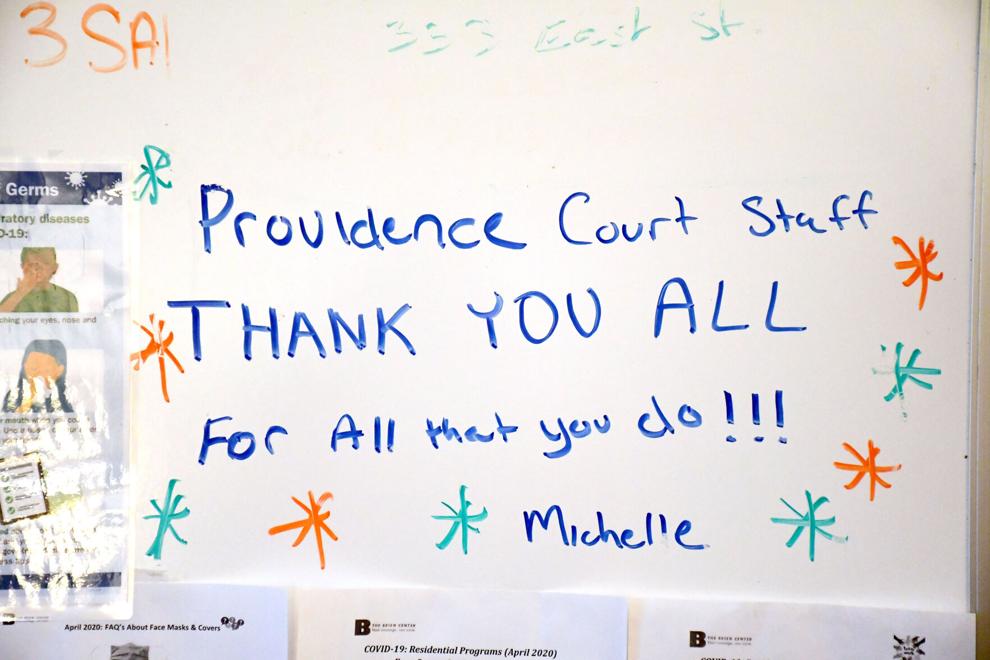 3 SAI
333 East St.
Germs
ratory diseases
D-19:
ching your eyes, nose and
mouth when you
Providence Court Staff
THANK YOU ALL
For All that you do!!!
Michelle
April 2020: FAQ's About Face Masks & Covers
B THE BRIEN CENTER
COVID-19: Residential Programs (April 2020)
B THE BRIEN CENTER